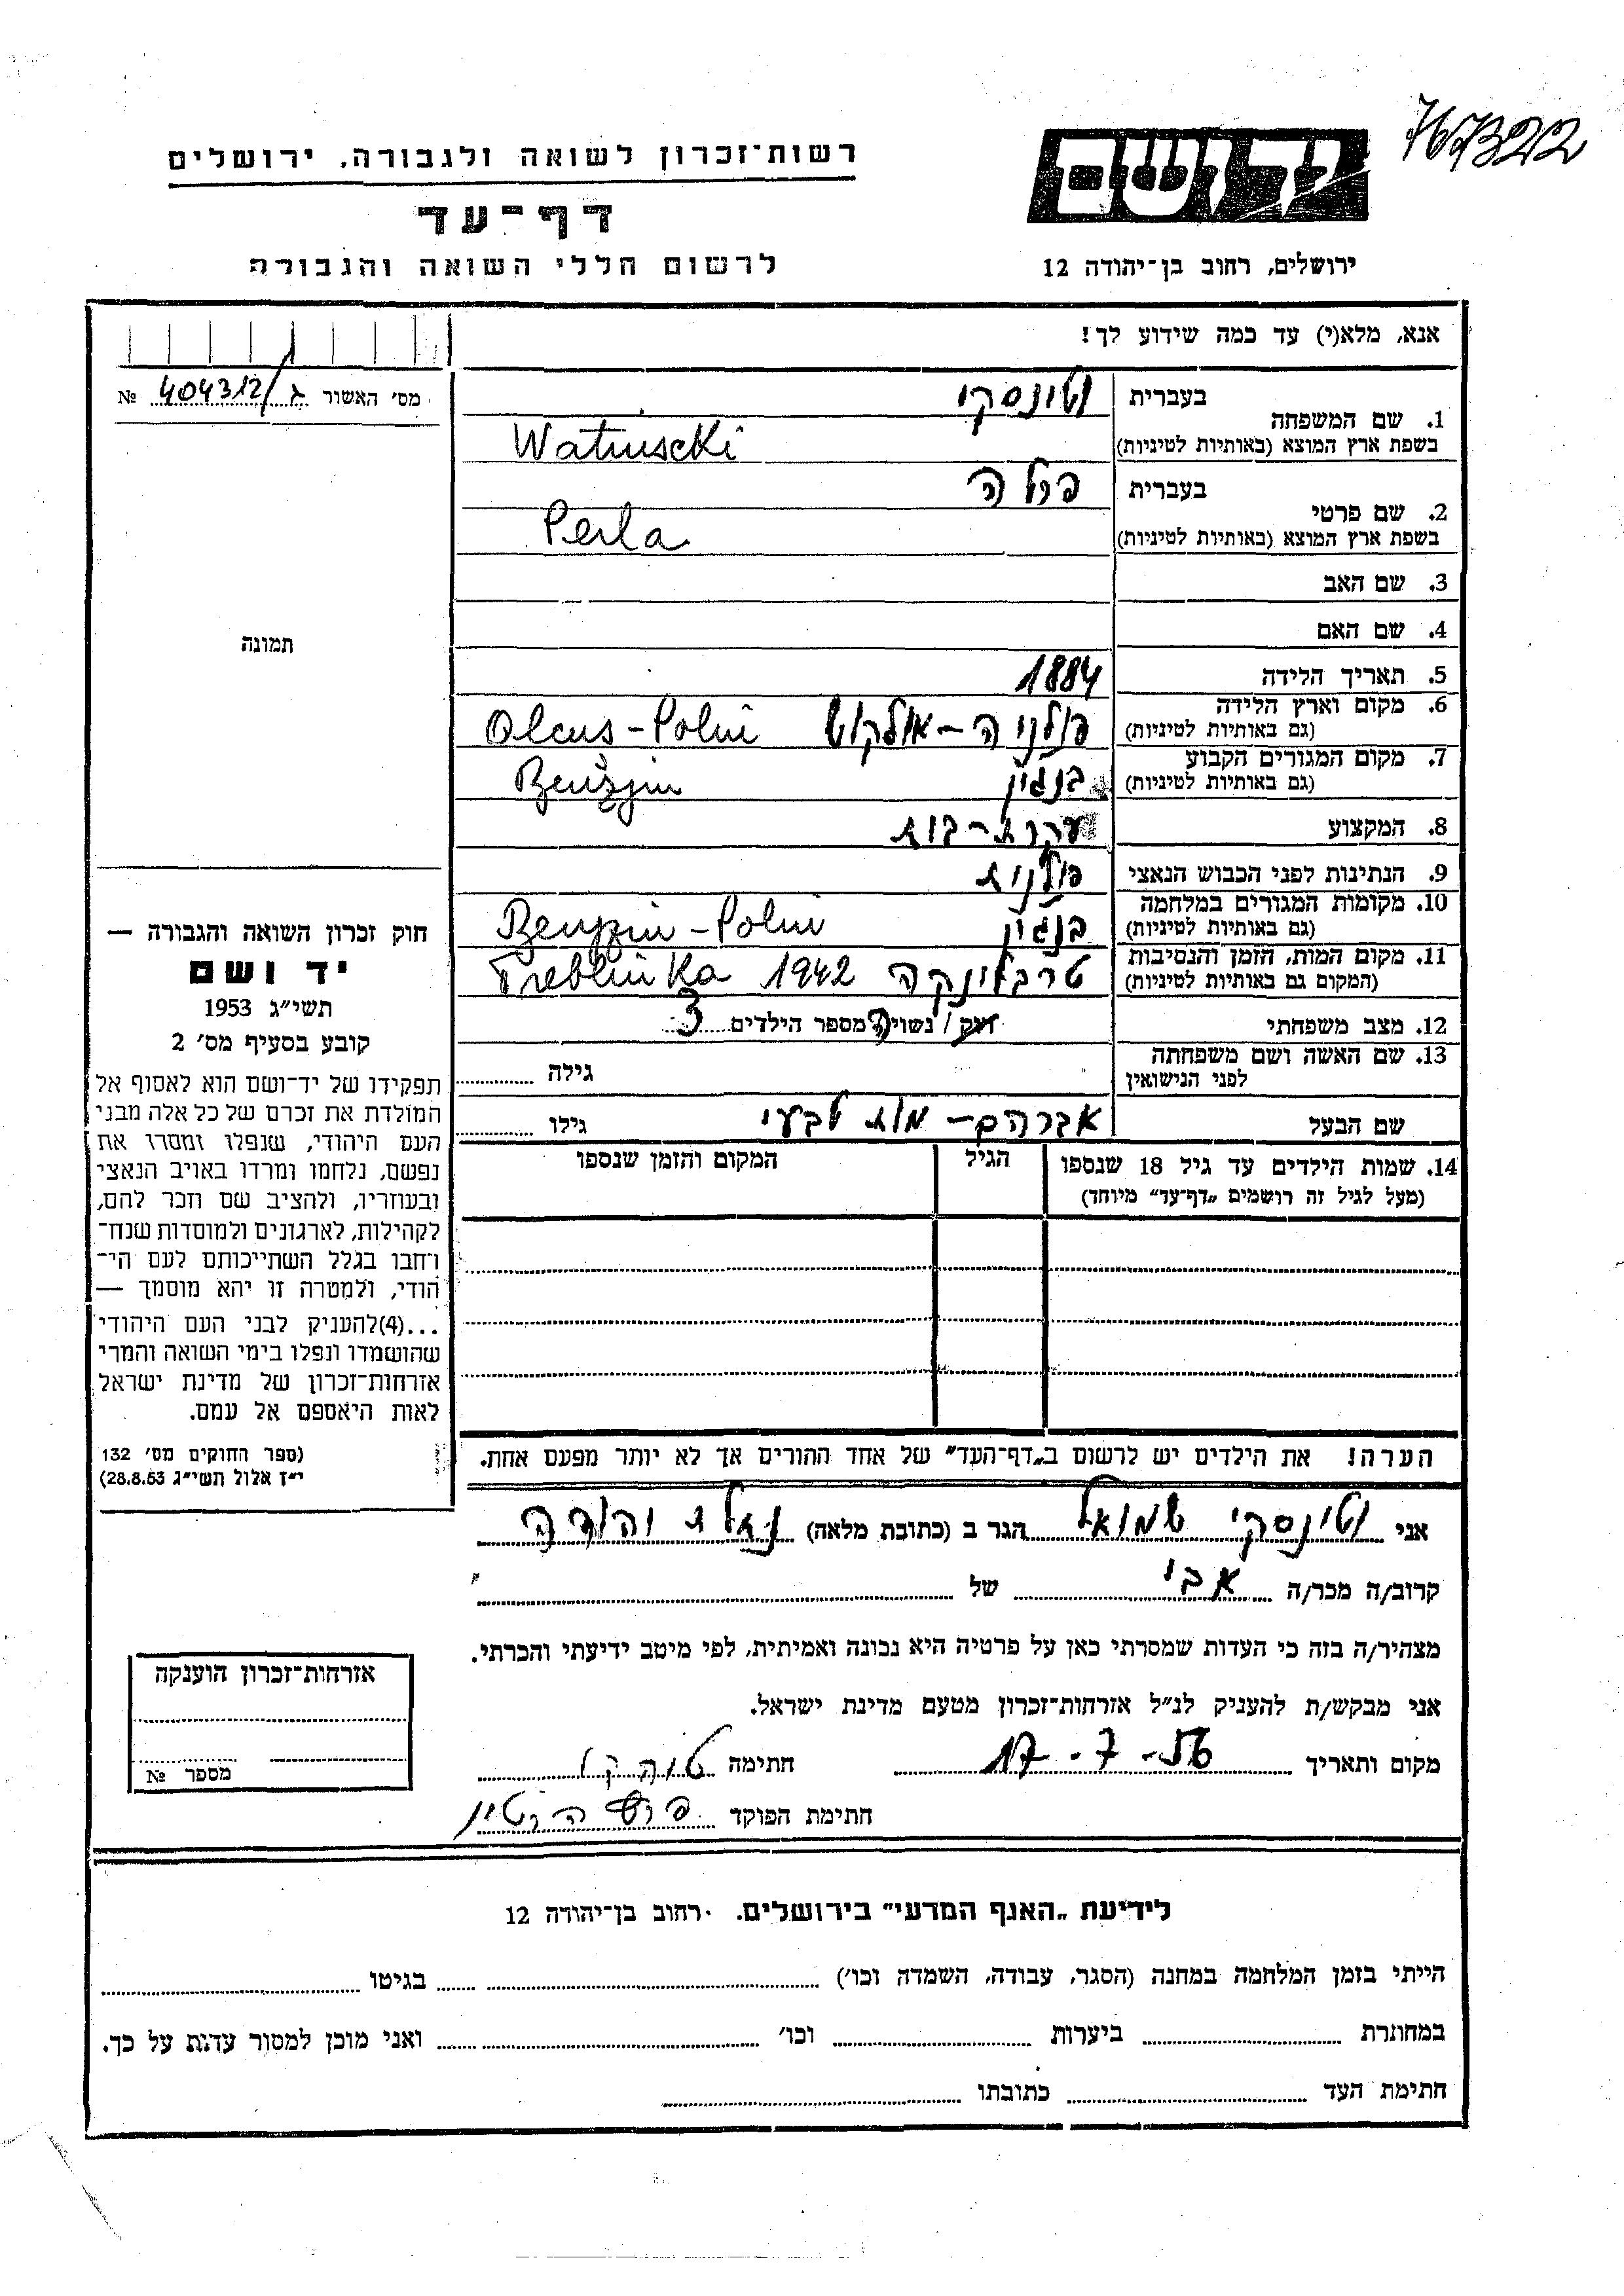 767322
רשות־זכרון לשואה ולגבורה, ירושלים
דף־עד
לרשום חללי השואה והגבורה
יד ושם
ירושלים, רחוב בן־יהודה 12
אנא, מלא(י) עד כמה שידוע לך!
מס׳ האשור ג/404312 №
1. שם המשפחה
בעברית וטונסקי
בשפת ארץ המוצא (באותיות לטיניות) Watuscki
2. שם פרטי
בעברית פרלה
בשפת ארץ המוצא (באותיות לטיניות) Perla
3. שם האב
4. שם האם
5. תאריך הלידה 1884
6. מקום וארץ הלידה
(גם באותיות לטיניות) פולניה - אולקוש Olcus - Polni
7. מקום המגורים הקבוע
(גם באותיות לטיניות) בנגין
8. המקצוע עקרת - בית
9. הנתינות לפני הכבוש הנאצי פולנית
10. מקומות המגורים במלחמה
(גם באותיות לטיניות) בנגין Benzin - Polni
11. מקום המות, הזמן והנסיבות
(המקום גם באותיות לטיניות) טרבלינקה Treblinka 1942
12. מצב משפחתי רוק / נשוי ה מספר הילדים 3
13. שם האשה ושם משפחתה
לפני הנישואין גילה
שם הבעל אברהם - מות טבעי גילו
14. שמות הילדים עד גיל 18 שנספו
(מעל לגיל זה רושמים „דף־עד” מיוחד)
הגיל
המקום והזמן שנספו
הערה! את הילדים יש לרשום ב„דף־העד” של אחד ההורים אך לא יותר מפעם אחת.
תמונה
חוק זכרון השואה והגבורה —
יד ושם
תשי״ג 1953
קובע בסעיף מס׳ 2
תפקידו של יד־ושם הוא לאסוף אל
המולדת את זכרם של כל אלה מבני
העם היהודי, שנפלו ומסרו את
נפשם, נלחמו ומרדו באויב הנאצי
ובעוזריו, ולהציב שם וזכר להם,
לקהילות, לארגונים ולמוסדות שנח־
רחבו בגלל השתייכותם לעם הי־
הודי, ולמטרה זו יהא מוסמך —
...(4)להעניק לבני העם היהודי
שהושמדו ונפלו בימי השואה והמרי
אזרחות־זכרון של מדינת ישראל
לאות היאספם אל עמם.
(ספר החוקים מס׳ 132
י״ז אלול תשי״ג 28.8.53)
אני וטונסקי שמואל הגר ב (כתובת מלאה) נחלת יהודה
קרוב/ה מכר/ה אבי של
מצהיר/ה בזה כי העדות שמסרתי כאן על פרטיה היא נכונה ואמיתית, לפי מיטב ידיעתי והכרתי.
אני מבקש/ת להעניק לנ״ל אזרחות־זכרון מטעם מדינת ישראל.
מקום ותאריך 17-7-56 חתימה
חתימת הפוקד
אזרחות־זכרון הוענקה
מספר №
לידיעת „האגף המדעי” בירושלים. רחוב בן־יהודה 12
הייתי בזמן המלחמה במחנה (הסגר, עבודה, השמדה וכו׳) בגיטו
במחתרת ביערות וכו׳ ואני מוכן למסור עדות על כך.
חתימת העד כתובתו